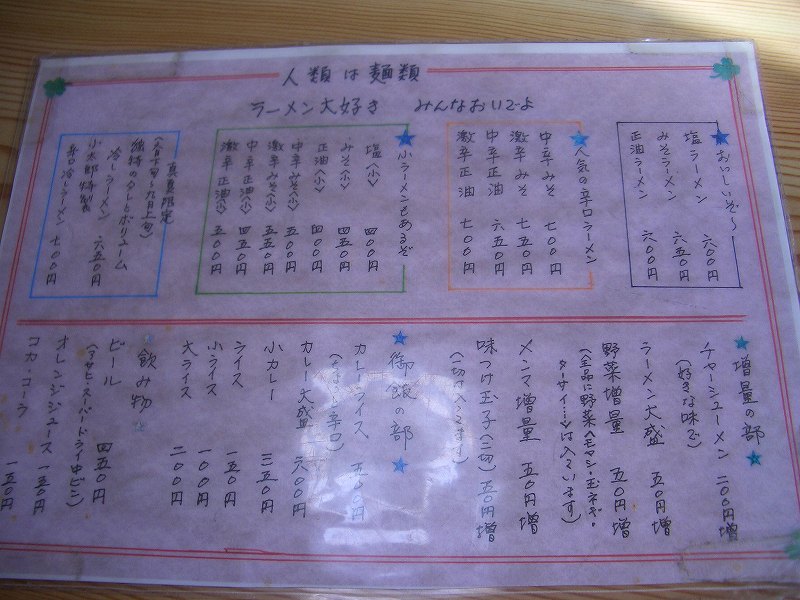 人類は麺類
ラーメン大好き みんなおいでよ
★おいしいぞ〜
塩ラーメン 六〇〇円
みそラーメン 六五〇円
正油ラーメン 六〇〇円
★人気の辛口ラーメン
中辛みそ 七〇〇円
激辛みそ 七五〇円
中辛正油 六五〇円
激辛正油 七〇〇円
★小ラーメンもあるぞ
塩〈小〉 四〇〇円
みそ〈小〉 四五〇円
正油〈小〉 四〇〇円
中辛みそ〈小〉 五〇〇円
激辛みそ〈小〉 五五〇円
中辛正油〈小〉 四五〇円
激辛正油〈小〉 五〇〇円
真夏限定
(六月下旬〜九月上旬)
独特のタレとボリューム
冷しラーメン 六五〇円
小太郎特製
辛口冷しラーメン 七〇〇円
★増量の部★
チャーシューメン 二〇〇円増
(好きな味で)
ラーメン大盛 五〇円増
野菜増量 五〇円増
(全品に野菜〈モヤシ・玉ネギ・
ターサイ…〉は入ています)
メンマ増量 五〇円増
味つけ玉子(二切) 五〇円増
(一切は入ってます)
★御飯の部★
カレーライス 五〇〇円
カレー大盛 六〇〇円
小カレー 三五〇円
ライス 一五〇円
小ライス 一〇〇円
大ライス 二〇〇円
★飲み物★
ビール 四五〇円
(アサヒスーパードライ中ビン)
オレンジジュース 一五〇円
コカ・コーラ 一五〇円